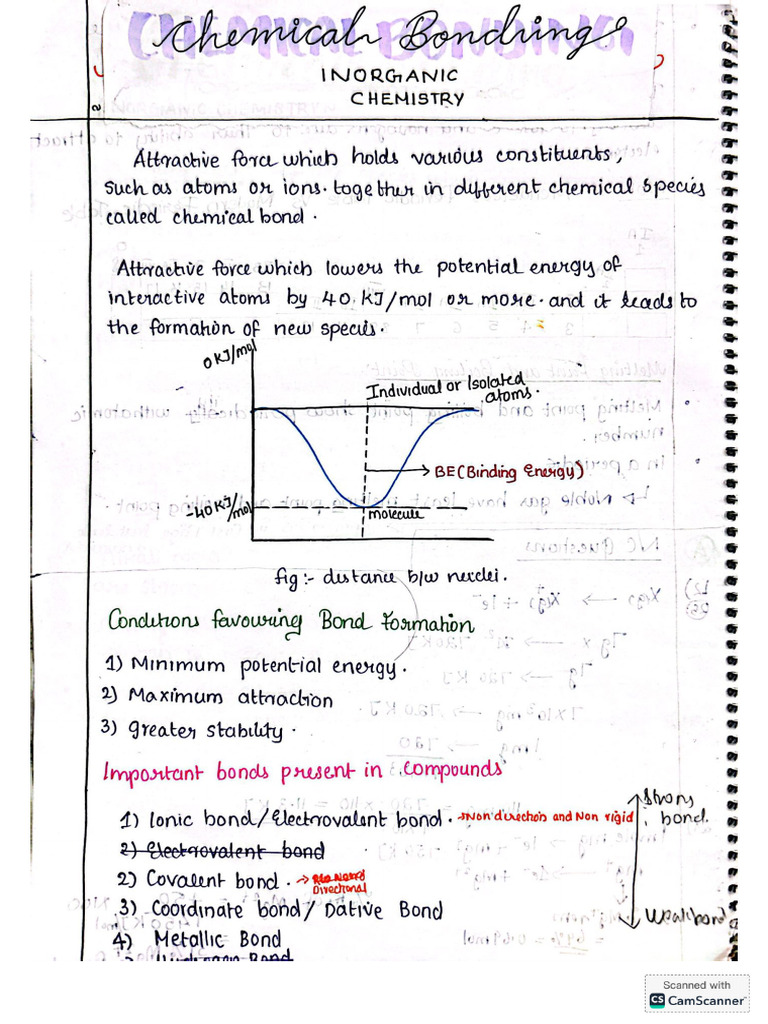 Chemical Bonding
INORGANIC
CHEMISTRY
Attractive force which holds various constituents,
such as atoms or ions. together in different chemical species
called chemical bond.
Attractive force which lowers the potential energy of
interactive atoms by 40 KJ/mol or more. and it leads to
the formation of new species.
0 KJ/mol
Individual or Isolated
atoms.
BE (Binding Energy)
-40 KJ/mol
molecule
fig :- distance b/w nuclei.
Conditions favouring Bond Formation
1) Minimum potential energy.
2) Maximum attraction
3) greater stability.
Important bonds present in compounds
Strong
bond.
1) Ionic bond/Electrovalent bond. → Non direction and Non rigid
2) Electrovalent bond
2) Covalent bond. →
Directional
3) Coordinate bond/ Dative Bond
Weak bond
4) Metallic Bond
Scanned with
CS CamScanner